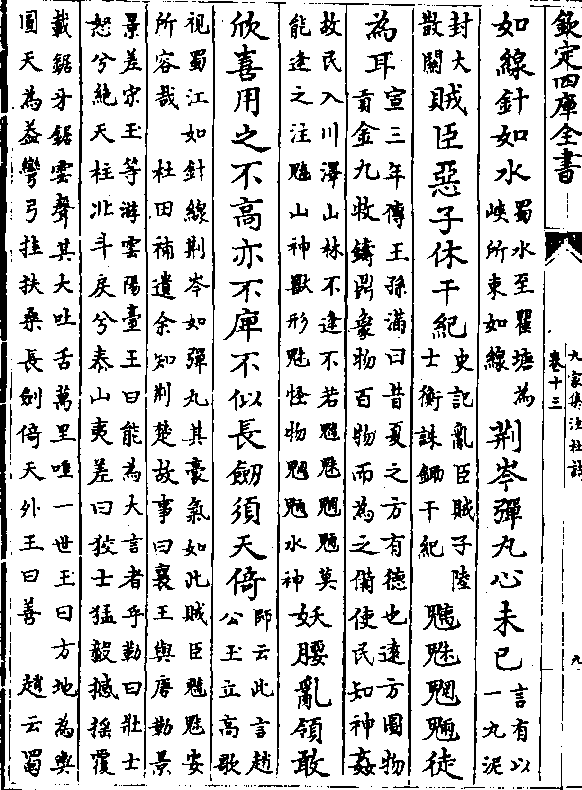 欽定四庫全書
九家集注杜詩
卷十三
九
如線針如水
蜀水至瞿塘為
峽所束如線
荆岑彈丸心未已
言有以
一丸泥
封大
散關
賊臣惡子休干紀
史記亂臣賊子陸
士衡誅鋤干紀
魑魅魍魎徒
為耳
宣三年傳王孫滿曰昔夏之方有德也遠方圖物
貢金九收鑄鼎象物百物而為之備使民知神姦
故民入川澤山林不逢不若魑魅魍魎莫
能逢之注魑山神獸形魅怪物魍魎水神
妖腰亂領敢
欣喜用之不高亦不庳不似長劒須天倚
師云此言趙
公玉立高歌
視蜀江如針線荆岑如彈丸其豪氣如此賊臣魑魅安
所容哉 杜田補遺余知荆楚故事曰襄王與唐勒景
景差宋玉等游雲陽臺王曰能為大言者乎勒曰壯士
恕兮絶天柱北斗戾兮泰山夷差曰狡士猛毅撼揺覆
載鋸牙鋸雲聲其大吐舌萬里唾一世王曰方地為輿
圓天為葢彎弓挂扶桑長劍倚天外王曰善 趙云蜀